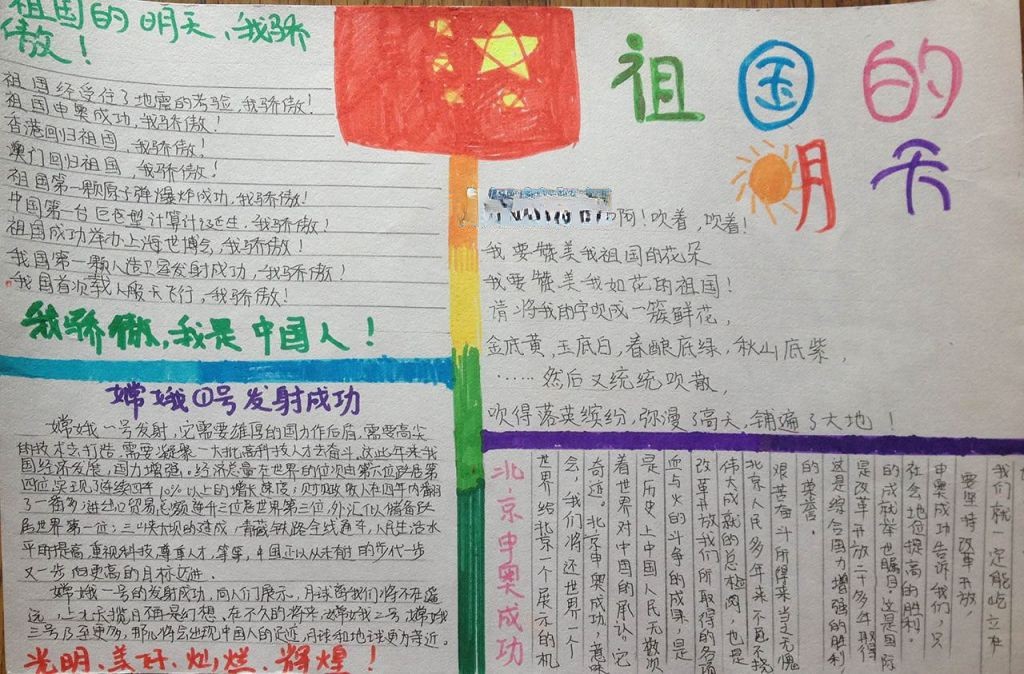 祖国的明天,我骄
傲!
祖国经受住了地震的考验,我骄傲!
祖国申奥成功,我骄傲!
香港回归祖国,我骄傲!
澳门回归祖国,我骄傲!
祖国第一颗原子弹爆炸成功,我骄傲!
中国第一台巨色型计算计诞生,我骄傲!
祖国成功举办上海世博会,我骄傲!
我国第一颗人造卫星发射成功,我骄傲!
我国首次载人航天飞行,我骄傲!
我骄傲,我是中国人!
嫦娥①号发射成功
嫦娥一号发射,它需要雄厚的国力作后盾,需要高尖
的技术去打造,需要凝聚一大批高科技人才去奋斗,这些年来我
国经济发展,国力增强。经济总量在世界的位次由第六位跃居第
四位,实现了连续四年10%以上的增长速度;财政收入在四年内翻
了一番多;进出口贸易总额连升三位居世界第三位,外汇储备跃
居世界第一位;三峡大坝的建成,青藏铁路全线通车,人民生活水
平的提高,重视科技,尊重人才,等等,中国正以从未有的步伐一步
又一步向更高的目标迈进.
嫦娥一号的发射成功,向人们展示,月球离我们将不在遥
远,上九天揽月不再是幻想,在不久的将来,嫦娥二号,嫦娥
三号乃至更多,那儿将会出现中国人的足迹,月球和地球更为亲近。
光明.美好.灿烂.辉煌!
祖国的
明天
啊!吹着,吹着!
我要赞美我祖国的花朵
我要赞美我如花的祖国!
请将我的字吹成一簇鲜花,
金底黄,玉底白,春酿底绿,秋山底紫,
……然后又统统吹散,
吹得落英缤纷,弥漫了高天,铺遍了大地!
北京申奥成功
我们就一定能屹立在
要坚持改革开放,
申奥成功告诉我们,只
社会地位提高的胜利。
的成就举世瞩目。这是国际
是改革开放二十多年取得
这是综合国力增强的胜利,
的荣誉。
艰苦奋斗所得来当之无愧
北京人民多年来不屈不挠
伟大成就的总检阅,也是
改革开放我们所取得的各项
血与火的斗争的成果,是
是历史上中国人民无数次
着世界对中国的承认。它
奇迹。北京申奥成功,意味
会,我们将还世界一个
世界给北京一个展示的机